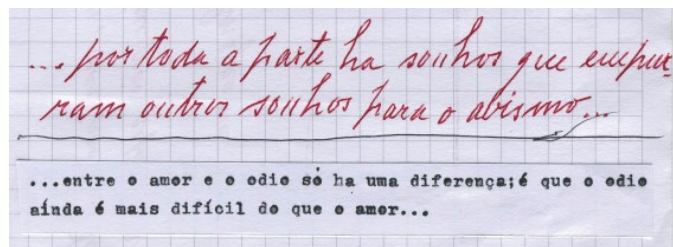 ...por toda a parte ha sonhos que empur-
ram outros sonhos para o abismo...
...entre o amor e o odio só ha uma diferença;é que o odio
aínda é mais difícil do que o amor...